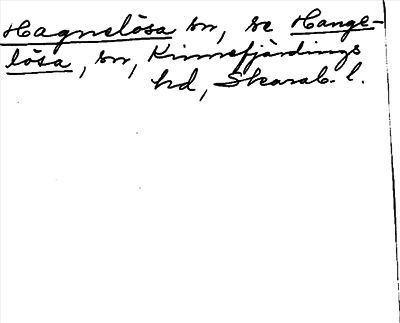 Hagnelösa sn, se Hange-
lösa, sn, Kinnefjärdings
hd, Skarab. l.